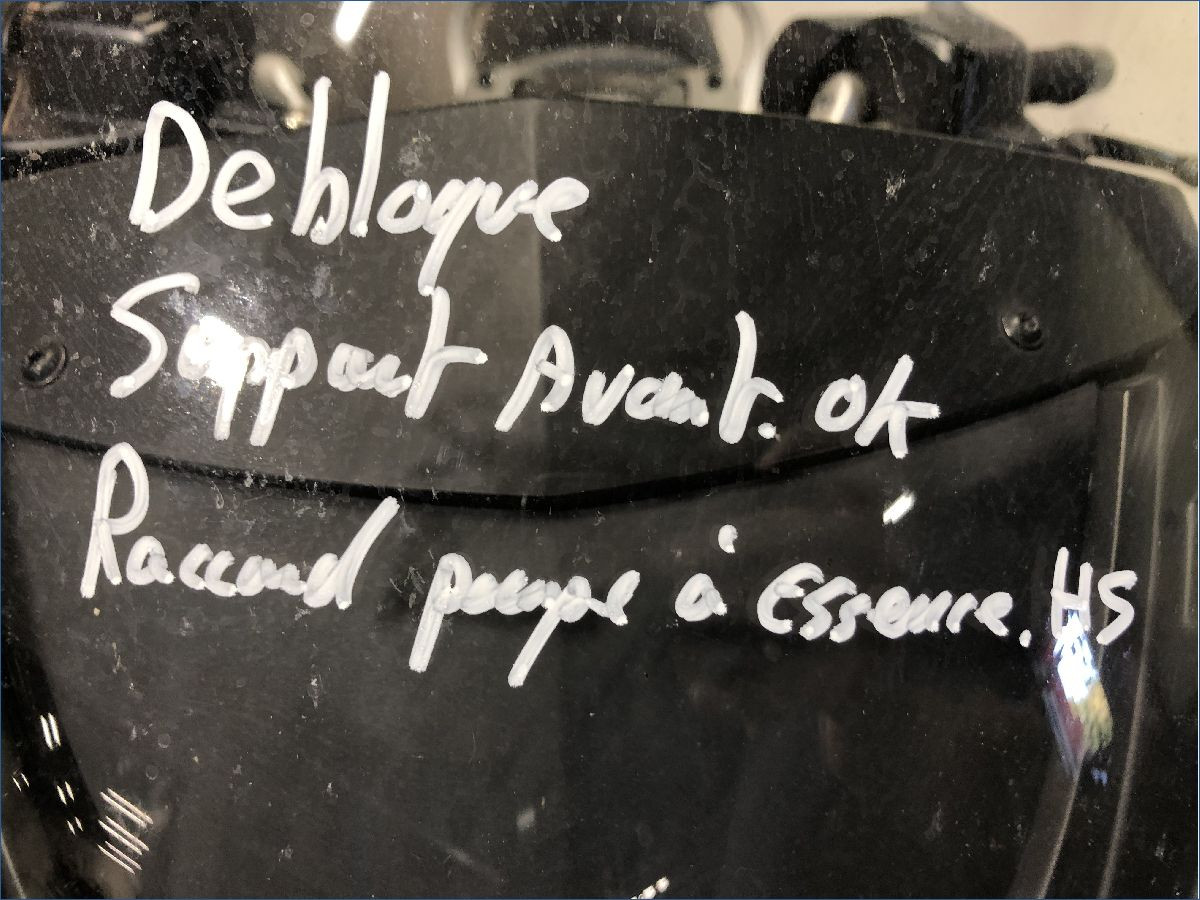 Debloque
Support Avant. Ok
Raccord pompe à Essence. HS